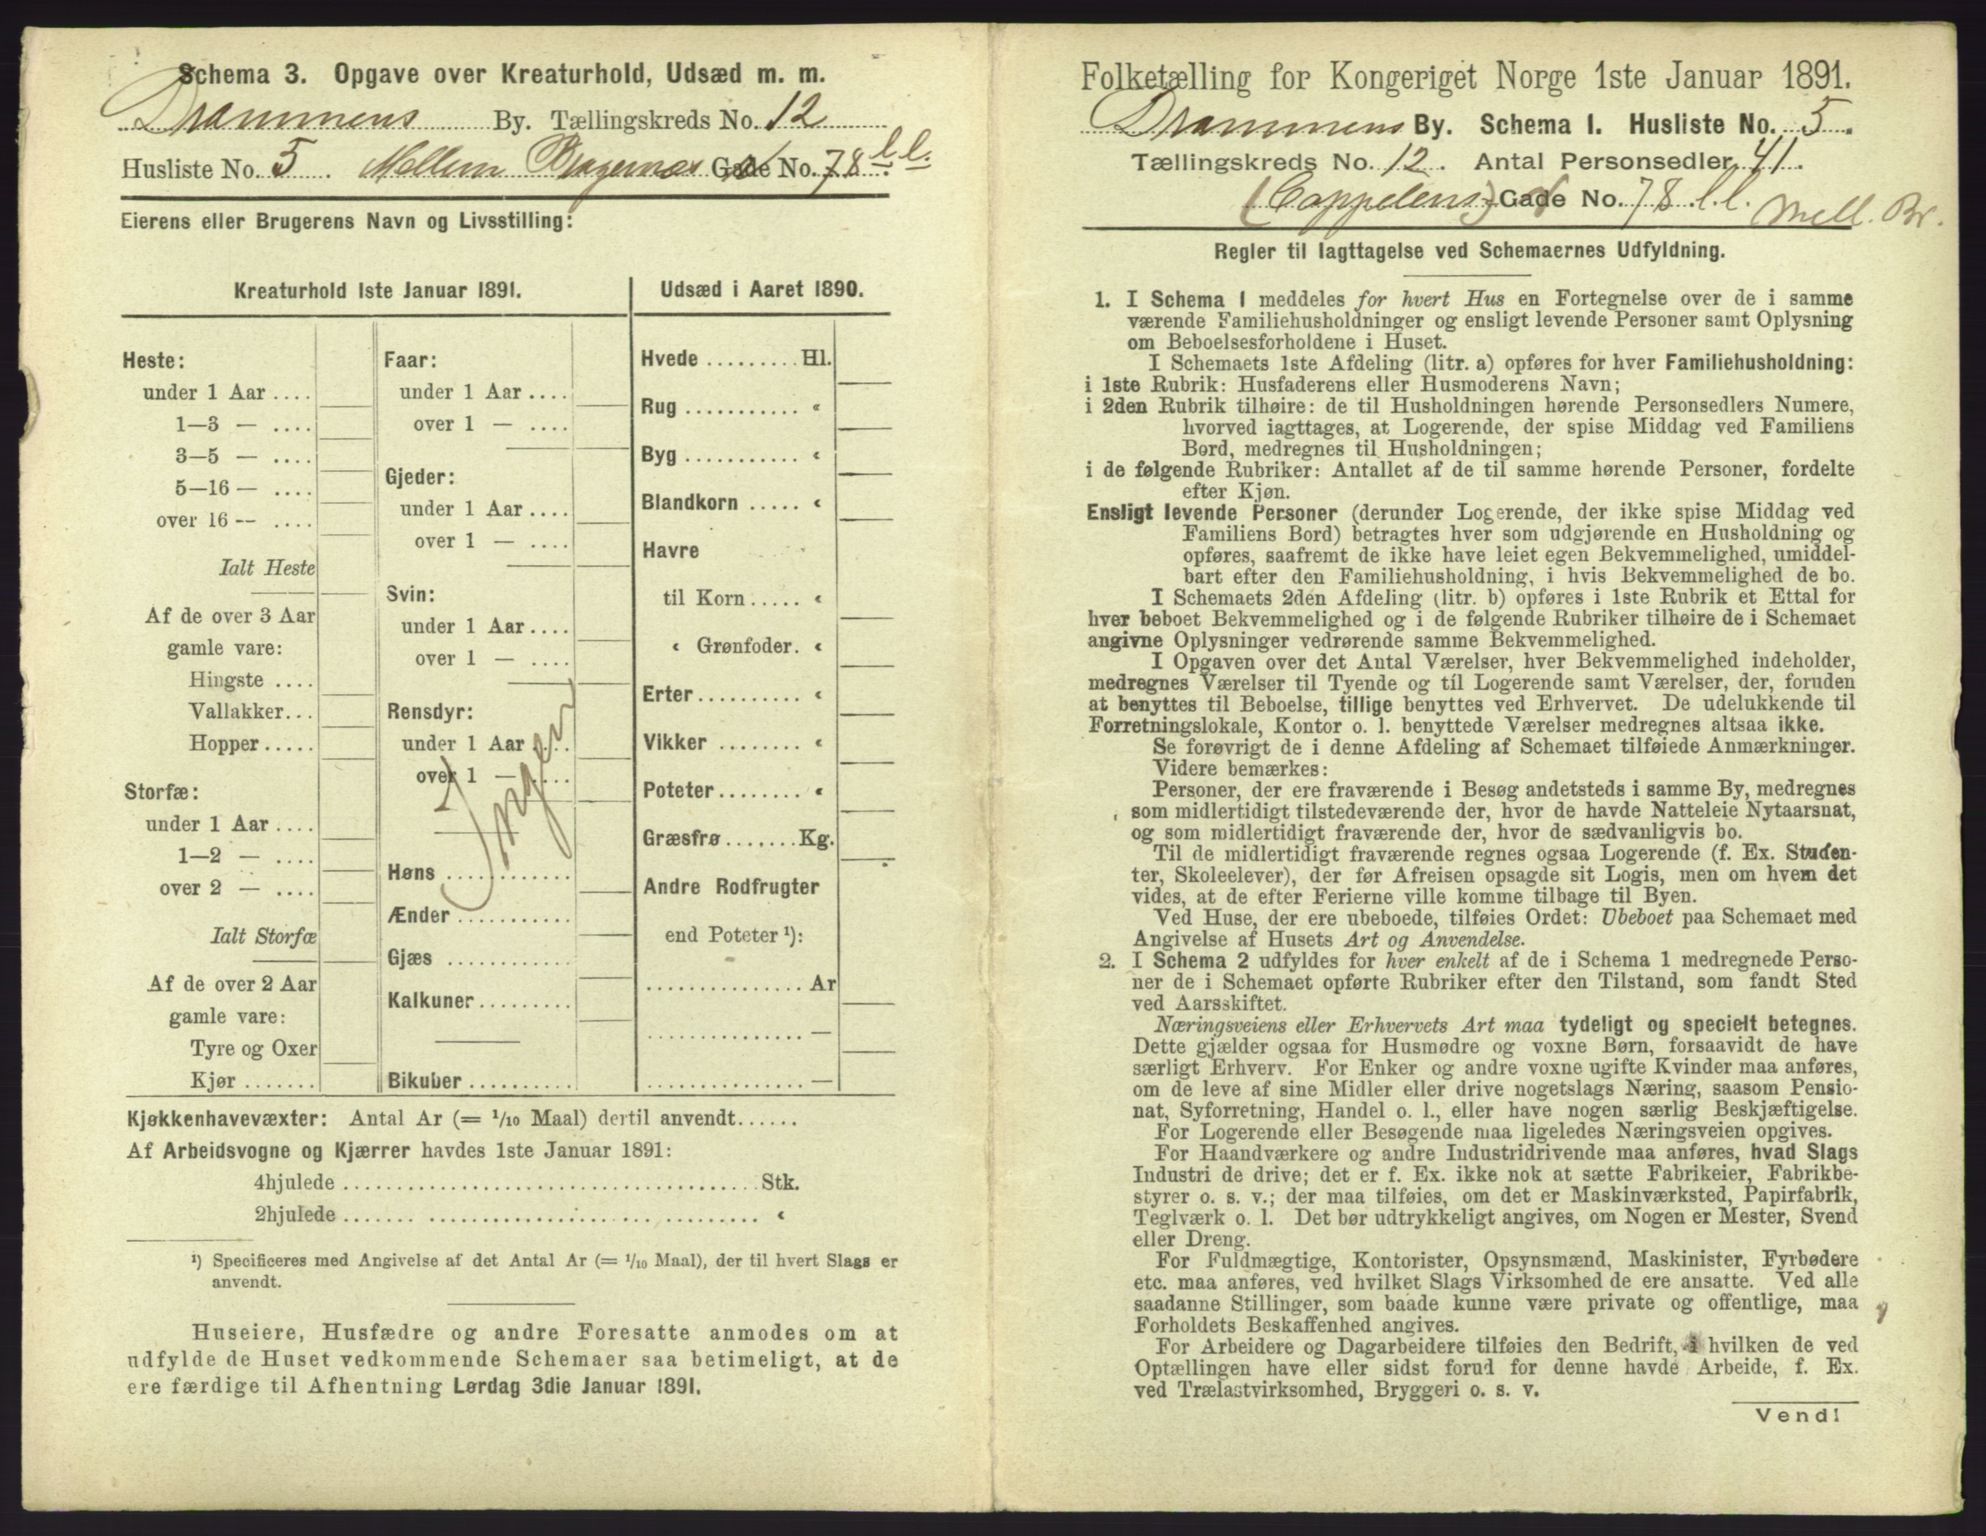 Schema 3. Opgave over Kreaturhold, Udsæd m. m.
Drammens By. Tællingskreds No. 12
Husliste No. 5 Mellem Bragernæs Gade No. 78 l.l.
Eierens eller Brugerens Navn og Livsstilling:
Kreaturhold 1ste Januar 1891.
Heste:
under 1 Aar ....
1—3 — ....
3—5 — ....
5—16 — ....
over 16 — ....
Ialt Heste
Af de over 3 Aar
gamle vare:
Hingste ....
Vallakker...
Hopper.....
Storfæ:
under 1 Aar ....
1—2 — ....
over 2 — ....
Ialt Storfæ
Af de over 2 Aar
gamle vare:
Tyre og Oxer
Kjør .......
Faar:
under 1 Aar ....
over 1 — ....
Gjeder:
under 1 Aar ....
over 1 — ....
Svin:
under 1 Aar ....
over 1 — ....
Rensdyr:
under 1 Aar ....
over 1 — ....
Ingen
Høns ............
Ænder ...........
Gjæs ............
Kalkuner.........
Bikuber ..........
Udsæd i Aaret 1890.
Hvede ......... Hl.
Rug ........... «
Byg ........... «
Blandkorn ..... «
Havre
til Korn ..... «
« Grønfoder. «
Erter.......... «
Vikker ........ «
Poteter........ «
Græsfrø ....... Kg.
Andre Rodfrugter
end Poteter ¹):
............... Ar
............... —
............... —
Kjøkkenhavevæxter: Antal Ar (= 1/10 Maal) dertil anvendt......
Af Arbeidsvogne og Kjærrer havdes 1ste Januar 1891:
4hjulede ........................................ Stk.
2hjulede ........................................ «
¹) Specificeres med Angivelse af det Antal Ar (= 1/10 Maal), der til hvert Slags er
anvendt.
Huseiere, Husfædre og andre Foresatte anmodes om at
udfylde de Huset vedkommende Schemaer saa betimeligt, at de
ere færdige til Afhentning Lørdag 3die Januar 1891.
Folketælling for Kongeriget Norge 1ste Januar 1891.
Drammens By. Schema 1. Husliste No. 5.
Tællingskreds No. 12. Antal Personsedler 41.
(Cappelens) Gade No. 78 l.l. Mell. Br.
Regler til Iagttagelse ved Schemaernes Udfyldning.
1. I Schema 1 meddeles for hvert Hus en Fortegnelse over de i samme
værende Familiehusholdninger og ensligt levende Personer samt Oplysning
om Beboelsesforholdene i Huset.
I Schemaets 1ste Afdeling (litr. a) opføres for hver Familiehusholdning:
i 1ste Rubrik: Husfaderens eller Husmoderens Navn;
i 2den Rubrik tilhøire: de til Husholdningen hørende Personsedlers Numere,
hvorved iagttages, at Logerende, der spise Middag ved Familiens
Bord, medregnes til Husholdningen;
i de følgende Rubriker: Antallet af de til samme hørende Personer, fordelte
efter Kjøn.
Ensligt levende Personer (derunder Logerende, der ikke spise Middag ved
Familiens Bord) betragtes hver som udgjørende en Husholdning og
opføres, saafremt de ikke have leiet egen Bekvemmelighed, umiddel-
bart efter den Familiehusholdning, i hvis Bekvemmelighed de bo.
I Schemaets 2den Afdeling (litr. b) opføres i 1ste Rubrik et Ettal for
hver beboet Bekvemmelighed og i de følgende Rubriker tilhøire de i Schemaet
angivne Oplysninger vedrørende samme Bekvemmelighed.
I Opgaven over det Antal Værelser, hver Bekvemmelighed indeholder,
medregnes Værelser til Tyende og til Logerende samt Værelser, der, foruden
at benyttes til Beboelse, tillige benyttes ved Erhvervet. De udelukkende til
Forretningslokale, Kontor o. l. benyttede Værelser medregnes altsaa ikke.
Se forøvrigt de i denne Afdeling af Schemaet tilføiede Anmærkninger.
Videre bemærkes:
Personer, der ere fraværende i Besøg andetsteds i samme By, medregnes
som midlertidigt tilstedeværende der, hvor de havde Natteleie Nytaarsnat,
og som midlertidigt fraværende der, hvor de sædvanligvis bo.
Til de midlertidigt fraværende regnes ogsaa Logerende (f. Ex. Studen-
ter, Skoleelever), der før Afreisen opsagde sit Logis, men om hvem det
vides, at de efter Ferierne ville komme tilbage til Byen.
Ved Huse, der ere ubeboede, tilføies Ordet: Ubeboet paa Schemaet med
Angivelse af Husets Art og Anvendelse.
2. I Schema 2 udfyldes for hver enkelt af de i Schema 1 medregnede Perso-
ner de i Schemaet opførte Rubriker efter den Tilstand, som fandt Sted
ved Aarsskiftet.
Næringsveiens eller Erhvervets Art maa tydeligt og specielt betegnes.
Dette gjælder ogsaa for Husmødre og voxne Børn, forsaavidt de have
særligt Erhverv. For Enker og andre voxne ugifte Kvinder maa anføres,
om de leve af sine Midler eller drive nogetslags Næring, saasom Pensio-
nat, Syforretning, Handel o. l., eller have nogen særlig Beskjæftigelse.
For Logerende eller Besøgende maa ligeledes Næringsveien opgives.
For Haandværkere og andre Industridrivende maa anføres, hvad Slags
Industri de drive; det er f. Ex. ikke nok at sætte Fabrikeier, Fabrikbe-
styrer o. s. v.; der maa tilføies, om det er Maskinværksted, Papirfabrik,
Teglværk o. l. Det bør udtrykkeligt angives, om Nogen er Mester, Svend
eller Dreng.
For Fuldmægtige, Kontorister, Opsynsmænd, Maskinister, Fyrbødere
etc. maa anføres, ved hvilket Slags Virksomhed de ere ansatte. Ved alle
saadanne Stillinger, som baade kunne være private og offentlige, maa
Forholdets Beskaffenhed angives.
For Arbeidere og Dagarbeidere tilføies den Bedrift, i hvilken de ved
Optællingen have eller sidst forud for denne havde Arbeide, f. Ex.
ved Trælastvirksomhed, Bryggeri o. s. v.
Vend!